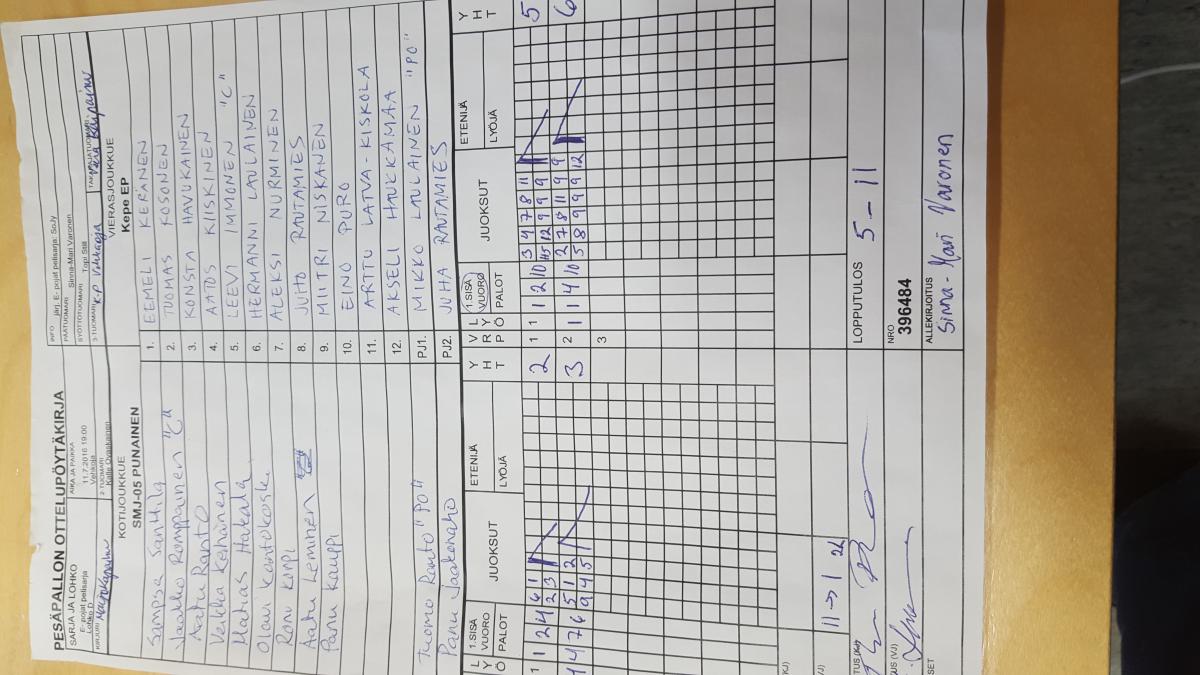 PESÄPALLON OTTELUPÖYTÄKIRJA
SARJA JA LOHKO
E- pojat pelisarja
Lohko D
AIKA JA PAIKKA
11.7.2016 19.00
Vehkoja
INFO järj. E- pojat pelisarja: SoJy
PÄÄTUOMARI Sinna-Mari Varonen
SYÖTTÖTUOMARI Topi Siik
KIRJURI
2-TUOMARI
Kalle Ovaskainen
3-TUOMARI
TAKARAJATUOMARI
KOTIJOUKKUE
SMJ-05 PUNAINEN
VIERASJOUKKUE
Kepe EP
Sampsa Santtila 1. EEMELI KERÄNEN
Jaakko Romppainen "C" 2. TUOMAS KOSONEN
Aatu Ranto 3. KONSTA HAVUKAINEN
Veikka Kehänen 4. AATOS KIISKINEN
Matias Hakala 5. LEEVI IMMONEN "C"
Olavi Kontukoski 6. HERMANNI LAULAINEN
Ranu Korpi 7. ALEKSI NURMINEN
Aatu Leminen 8. JUHO RAUTAMIES
Panu Kauppi 9. MIITRI NISKANEN
10. EINO PURO
11. ARTTU LATVA-KISKOLA
12. AKSELI HAUKKAMAA
Tuomo Ranto "PO" PJ1. MIKKO LAULAINEN "PO"
Panu Jaakonaho PJ2. JUHA RAUTAMIES
L Y Ö 1.SISÄ VUORO PALOT JUOKSUT ETENIJÄ LYÖJÄ Y H T V R P L Y Ö 1.SISÄ VUORO PALOT JUOKSUT ETENIJÄ LYÖJÄ Y H T
1 1 2 4 6 1 2 1 1 1 2 10 3 4 7 8 11 5
2 3 15 12 9 9 9
4 7 6 5 1 2 3 2 1 1 4 10 2 7 8 11 9 9 6
9 4 5 5 8 9 9 9 12
3
11 → 1 2L
LOPPUTULOS 5 - 11
NRO
396484
ALLEKIRJOITUS
Sinna-Mari Varonen